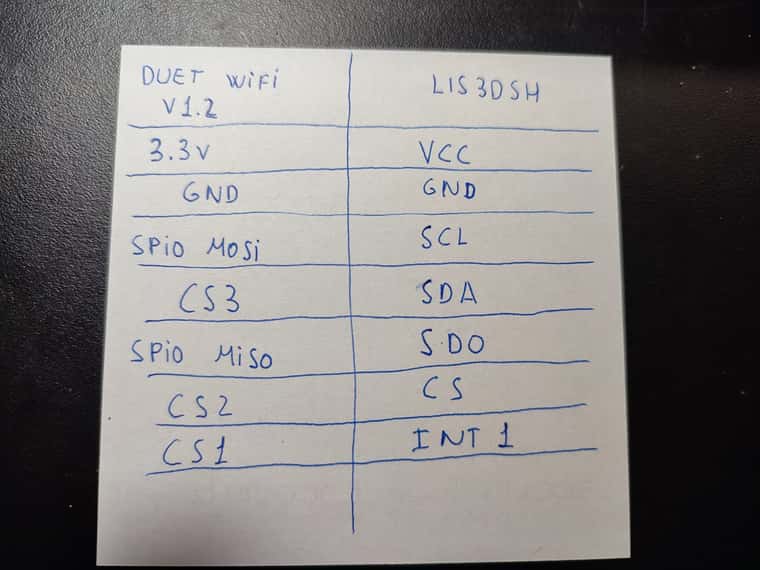 DUET WiFi LIS3DSH
V1.2
3.3V VCC
GND GND
SPi0 MOSi SCL
CS3 SDA
SPi0 MiSO SDO
CS2 CS
CS1 INT1